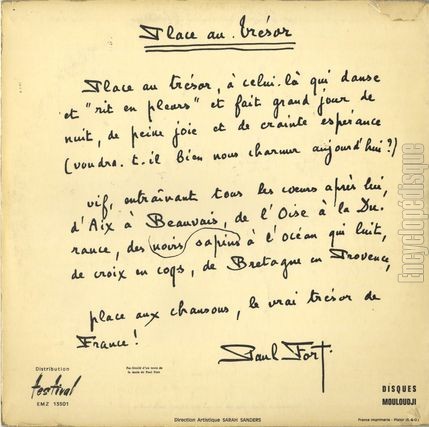 Place au trésor
Place au trésor, à celui-là qui danse
et "rit en pleurs" et fait grand jour de
nuit, de peine joie et de crainte espérance
(voudra-t-il bien nous charmer aujourd'hui ?)
vif, entraînant tous les cœurs après lui,
d'Aix à Beauvais, de l'Oise à la Du-
rance, des noirs sapins à l'océan qui luit,
de croix en coqs, de Bretagne en Provence,
place aux chansons, le vrai trésor de
France !
Paul Fort.
Distribution
festival
EMZ 13501
Fac-similé d'un texte de
la main de Paul Fort
DISQUES
MOULOUDJI
Direction Artistique SARAH SANDERS
Encyclopédisque